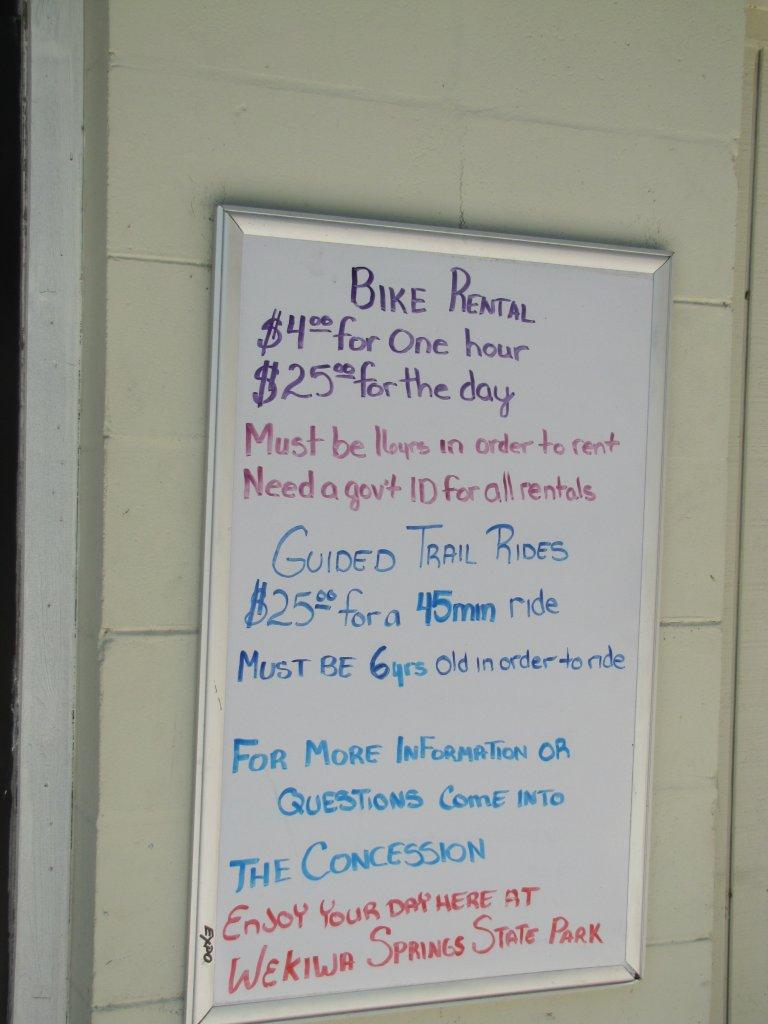 BIKE RENTAL
$4.00 for One hour
$25.00 for the day
Must be 16yrs in order to rent
Need a gov't ID for all rentals
GUIDED TRAIL RIDES
$25.00 for a 45min ride
MUST BE 6yrs Old in order to ride
FOR MORE INFORMATION OR
QUESTIONS COME INTO
THE CONCESSION
ENJOY YOUR DAY HERE AT
WEKIWA SPRINGS STATE PARK
EXPO